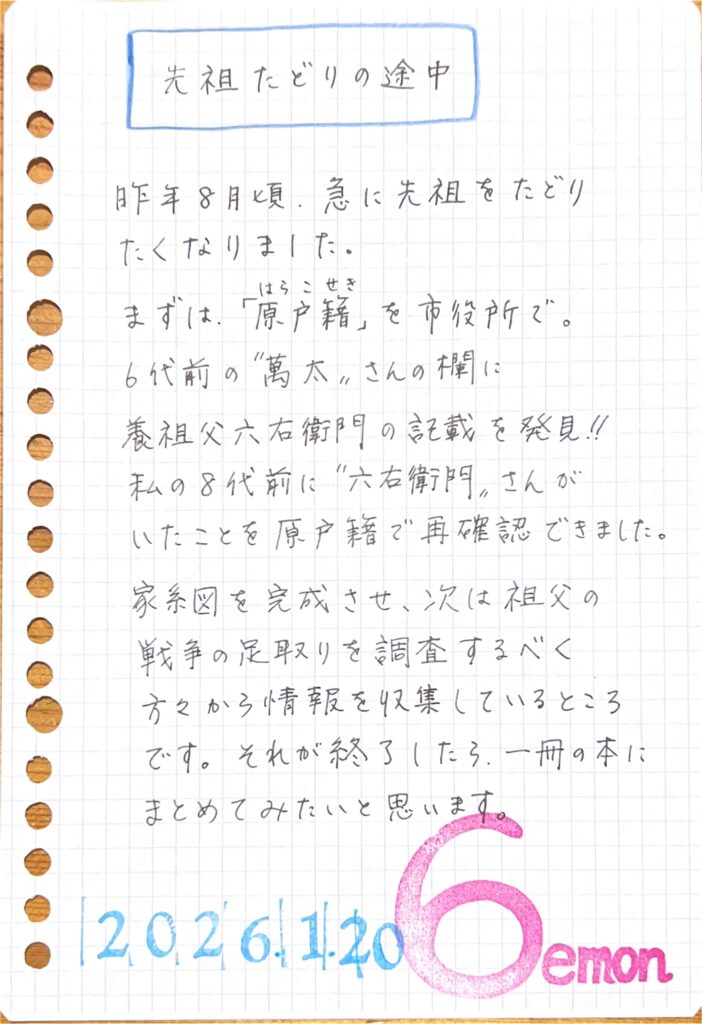 先祖たどりの途中
昨年8月頃、急に先祖をたどり
たくなりました。
はら こ せき
まずは、「原戸籍」を市役所で。
6代前の〝萬太〟さんの欄に
養祖父六右衛門の記載を発見!!
私の8代前に〝六右衛門〟さんが
いたことを原戸籍で再確認できました。
家系図を完成させ、次は祖父の
戦争の足取りを調査するべく
方々から情報を収集しているところ
です。それが終了したら、一冊の本に
まとめてみたいと思います。
2026.1.20
6emon.